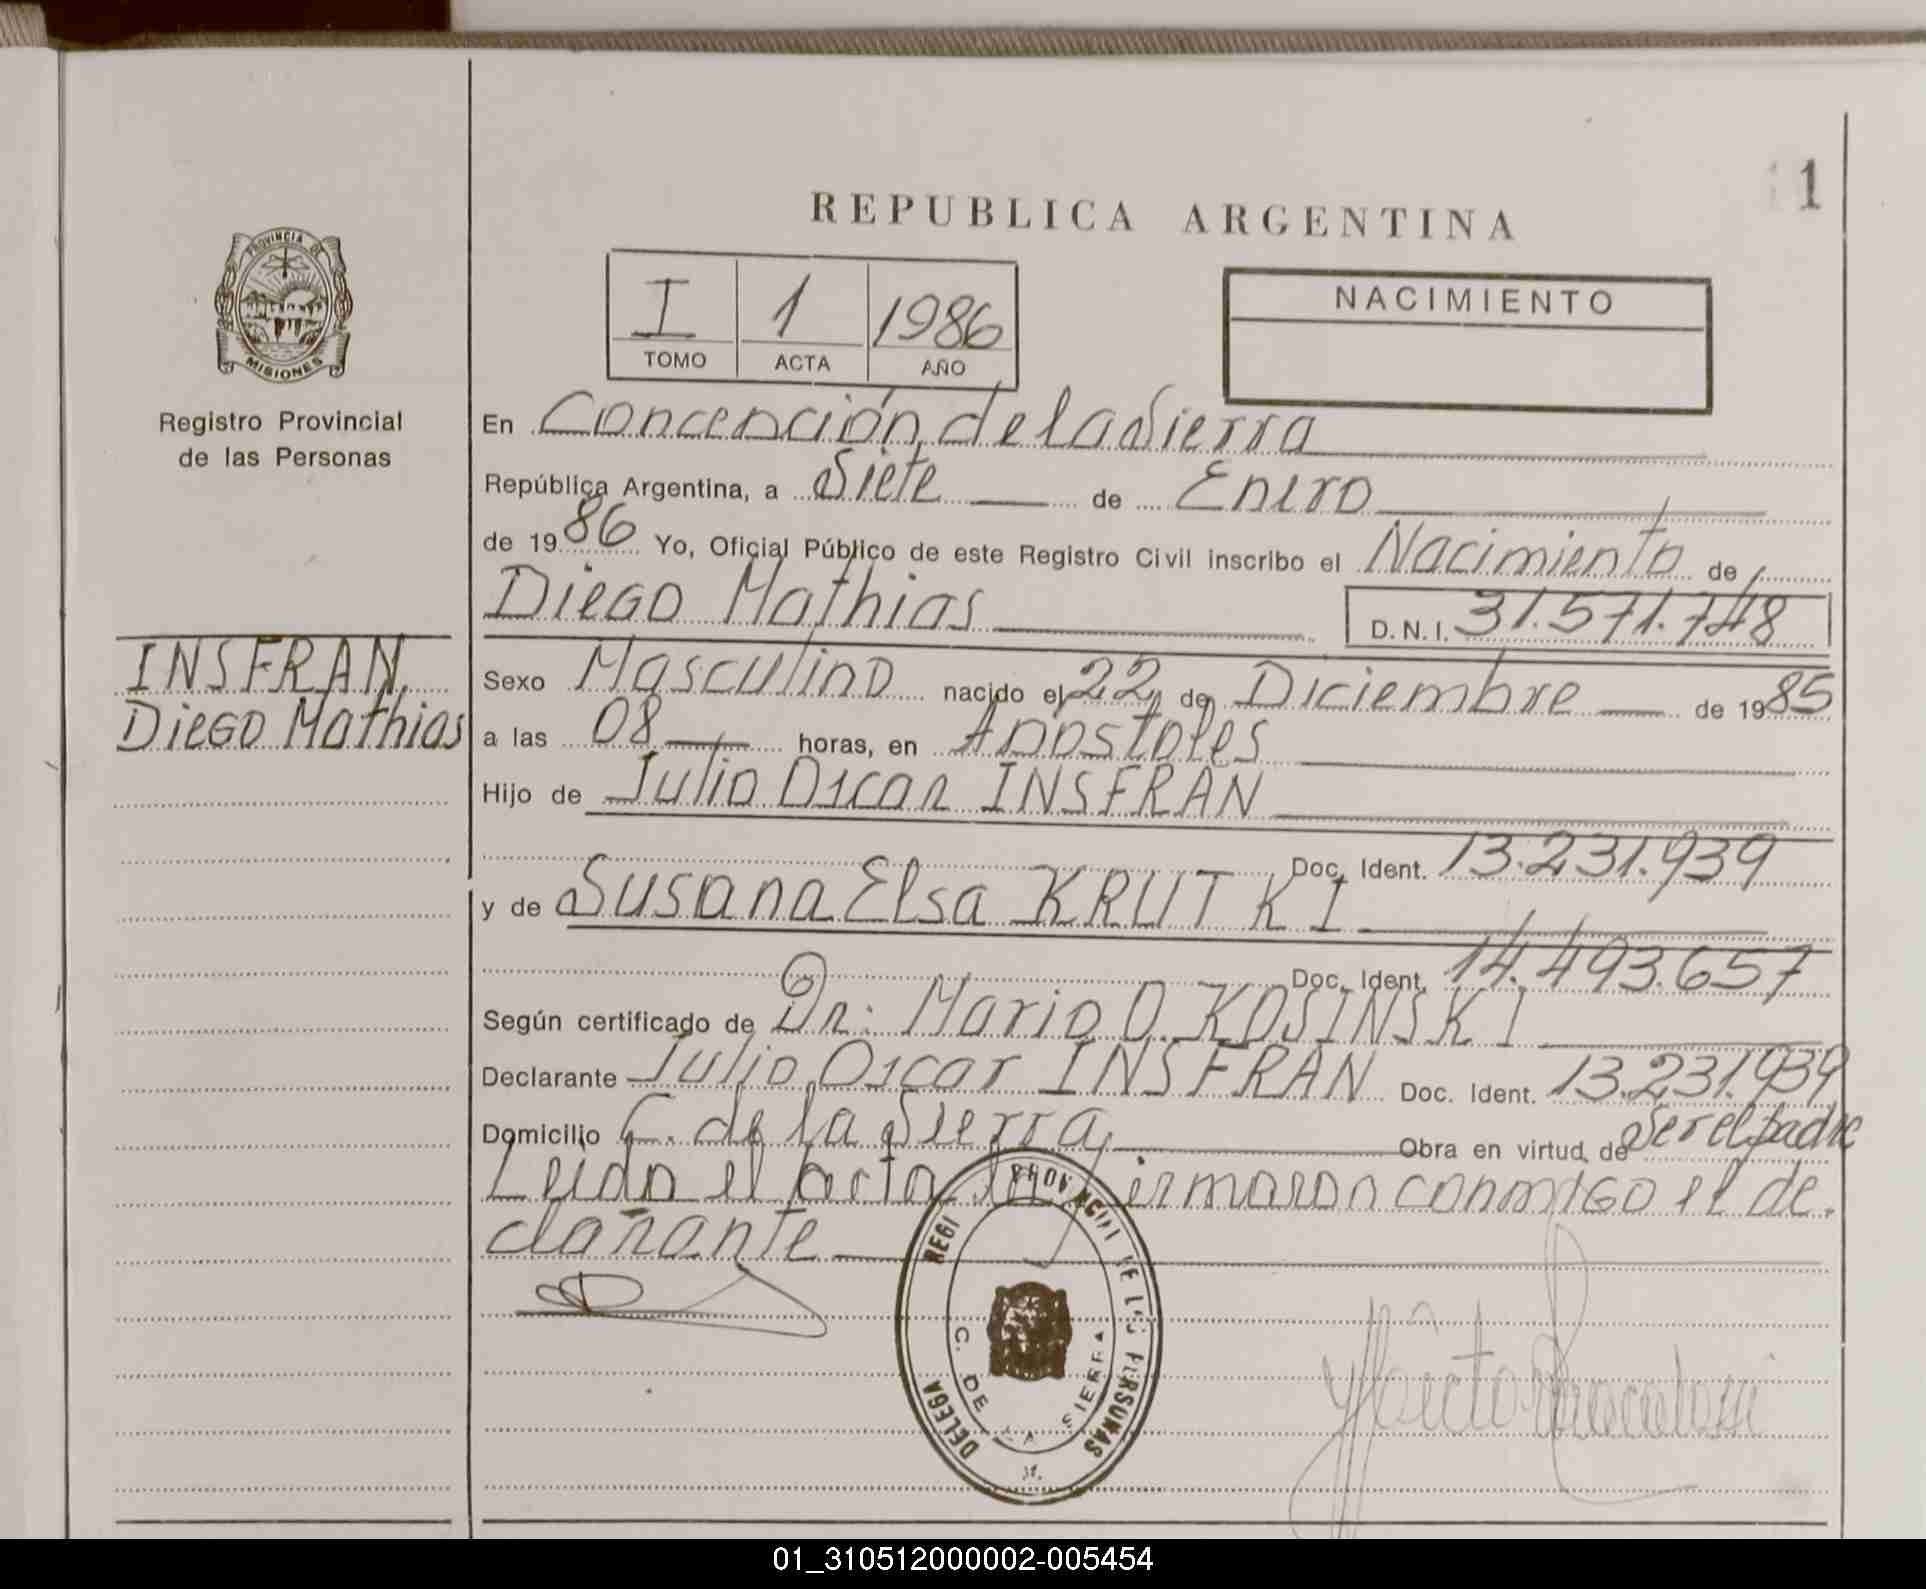 1
REPUBLICA ARGENTINA
PROVINCIA DE
MISIONES
Registro Provincial
de las Personas
I 1 1986
TOMO ACTA AÑO
NACIMIENTO
En Concepción de la Sierra
República Argentina, a Siete de Enero
de 1986 Yo, Oficial Público de este Registro Civil inscribo el Nacimiento de
Diego Mathias D.N.I. 31.571.748
INSFRAN,
Diego Mathias
Sexo Masculino nacido el 22 de Diciembre de 1985
a las 08 horas, en Apóstoles
Hijo de Julio Oscar INSFRAN
Doc. Ident. 13.231.939
y de Susana Elsa KRUTKI
Doc. Ident. 14.493.657
Según certificado de Dr: Mario O. KOSINSKI
Declarante Julio Oscar INSFRAN Doc. Ident. 13.231.939
Domicilio C. de la Sierra, Obra en virtud de Ser el padre
Leida el acta la firmaron conmigo el de.
clarante
C. DE LA SIERRA
01_310512000002-005454